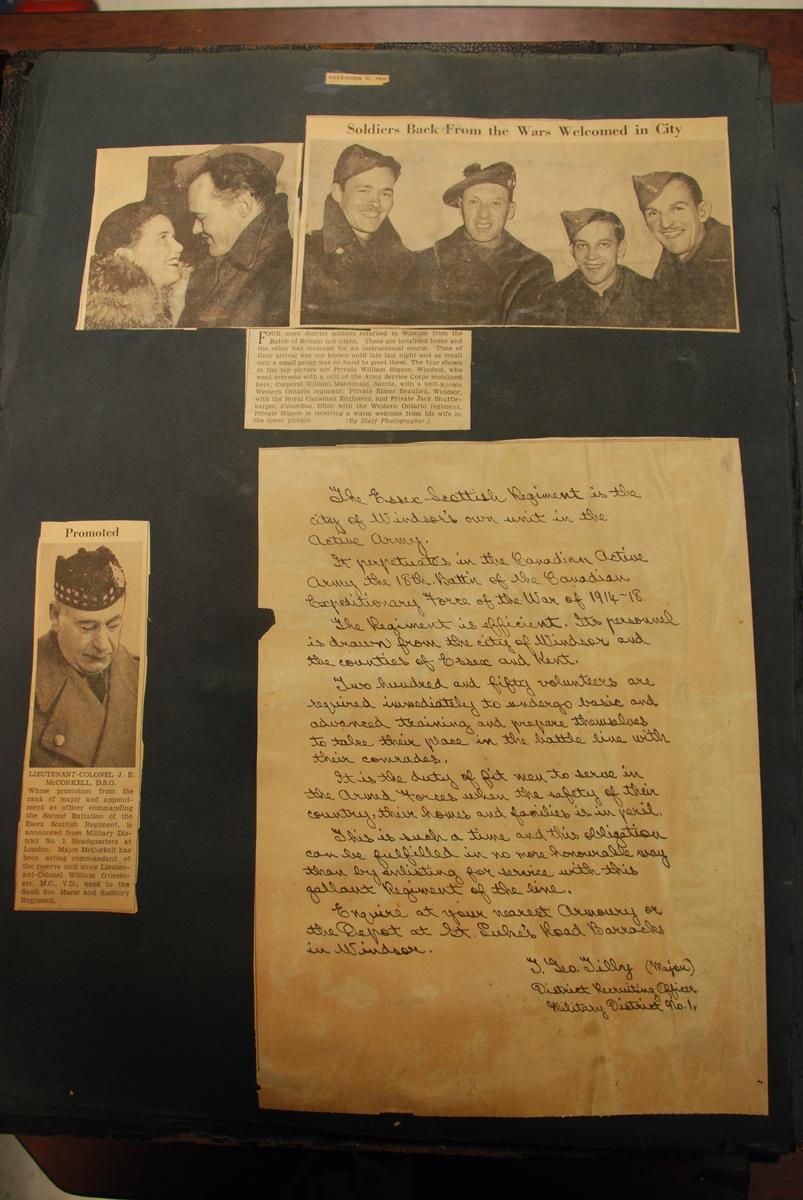 Soldiers Back From the Wars Welcomed in City
FOUR more district soldiers returned to Windsor from the
Battle of Britain last night. Three are invalided home and
the other has returned for an instructional course. Time of
their arrival was not known until late last night and as result
only a small group was on hand to greet them. The four shown
in the top picture are Private William Higson, Windsor, who
went overseas with a unit of the Army Service Corps mobilized
here; Corporal William Macdonald, Sarnia, with a well-known
Western Ontario regiment; Private Elmer Beaulieu, Windsor,
with the Royal Canadian Engineers, and Private Jack Shuffle-
barger, Columbus, Ohio, with the Western Ontario regiment.
Private Higson is receiving a warm welcome from his wife in
the lower picture. (By Staff Photographer.)
Promoted
LIEUTENANT-COLONEL J. E.
McCORKELL, D.S.O.
Whose promotion from the
rank of major and appoint-
ment as officer commanding
the Second Battalion of the
Essex Scottish Regiment, is
announced from Military Dis-
trict No. 1 Headquarters at
London. Major McCorkell has
been acting commandant of
the reserve unit since Lieuten-
ant-Colonel William Griesin-
ger, M.C., V.D., went to the
Sault Ste. Marie and Sudbury
Regiment.
The Essex Scottish Regiment is the
city of Windsor's own unit in the
Active Army.
It perpetuates in the Canadian Active
Army the 18th. Batt'n of the Canadian
Expeditionary Force of the War of 1914-18
The Regiment is efficient. Its personnel
is drawn from the city of Windsor and
the counties of Essex and Kent.
Two hundred and fifty volunteers are
required immediately to undergo basic and
advanced training and prepare themselves
to take their place in the battle line with
their comrades.
It is the duty of fit men to serve in
the Armed Forces when the safety of their
country, their homes and families is in peril.
This is such a time and this obligation
can be fulfilled in no more honourable way
than by enlisting for service with this
gallant Regiment of the line.
Enquire at your nearest Armoury or
the Depot at St. Luke's Road Barracks
in Windsor.
T. Geo. Tilly (Major)
District Recruiting Officer
Military District No. 1.